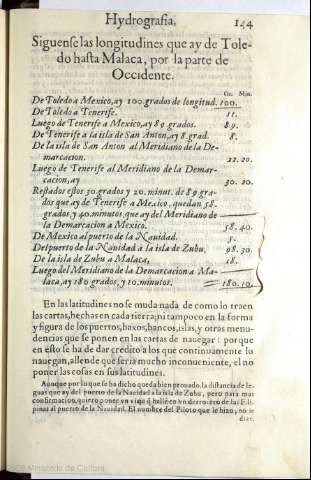 Hydrografia. 144
Siguense las longitudines que ay de Tole-
do hasta Malaca, por la parte de
Occidente.
Gr. Min.
De Toledo a Mexico, ay 100. grados de longitud. 100.
De Toledo a Tenerife. 11.
Luego de Tenerife a Mexico, ay 89 grados. 89.
De Tenerife a la isla de San Anton, ay 8. grad. 8.
De la isla de San Anton al Meridiano de la De-
marcacion. 22. 20.
Luego de Tenerife al Meridiano de la Demar-
cacion, ay 30. 20.
Restados estos 30 grados y 20. minut. de 89 gra-
dos que ay de Tenerife a Mexico, quedan 58.
grados y 40. minutos, que ay del Meridiano de
la Demarcacion a Mexico. 58. 40.
De Mexico al puerto de la Navidad. 5.
Del puerto de la Navidad a la isla de Zubu, 98. 30.
De la isla de Zubu a Malaca, 18.
Luego del Meridiano de la Demarcacion a Ma-
laca, ay 180 grados, y 10. minutos. 180. 10.
En las latitudines no se muda nada de como lo traen
las cartas, hechas en cada tierra; ni tampoco en la forma
y figura de los puertos, baxos, bancos, islas, y otras menu-
dencias que se ponen en las cartas de nauegar: porque
en esto se ha de dar credito a los que continuamente lo
nauegan, allende que seria mucho inconueniente, el no
poner las cosas en sus latitudines.
Aunque por lo que se ha dicho queda bien prouado, la distancia de le-
guas que ay del puerto de la Nauidad a la isla de Zubu, pero para mas
confirmacion, quiero poner vn viage q̃ hallè en vn derrotero de las Fili-
pinas al puerto de la Nauidad. El nombre del Piloto que le hizo, no se
dize.
Ministerio de Cultura